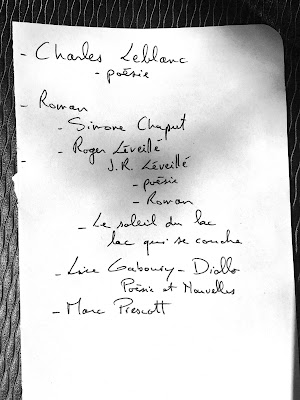 - Charles Leblanc
- poésie
- Roman
- Simone Chaput
- Roger Léveillé
J.R. Léveillé
- poésie
- Roman
- Le soleil du lac
lac qui se couche
- Lise Gaboury-Diallo
Poésie et Nouvelles
- Marc Prescott